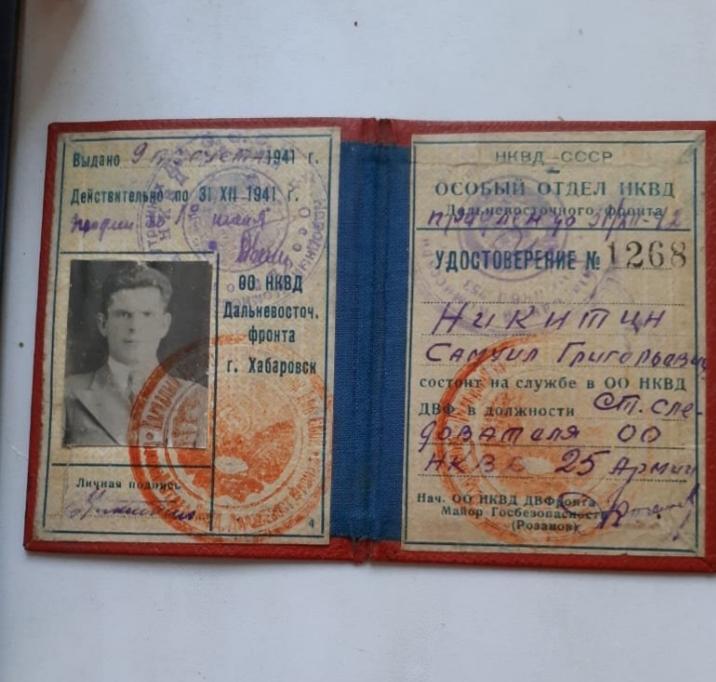 Выдано 9 августа 1941 г.
Действительно по 31 XII 1941 г.
ОО НКВД
Дальневосточ.
фронта
г. Хабаровск
Личная подпись
4
НКВД—СССР
ОСОБЫЙ ОТДЕЛ НКВД
Дальневосточного фронта
УДОСТОВЕРЕНИЕ № 1268
Никитин
Самуил Григорьевич
состоит на службе в ОО НКВД
ДВФ в должности ст. сле-
дователя ОО
НКВД 25 Армии
Нач. ОО НКВД ДВФронта
Майор Госбезопасности
(Розанов)